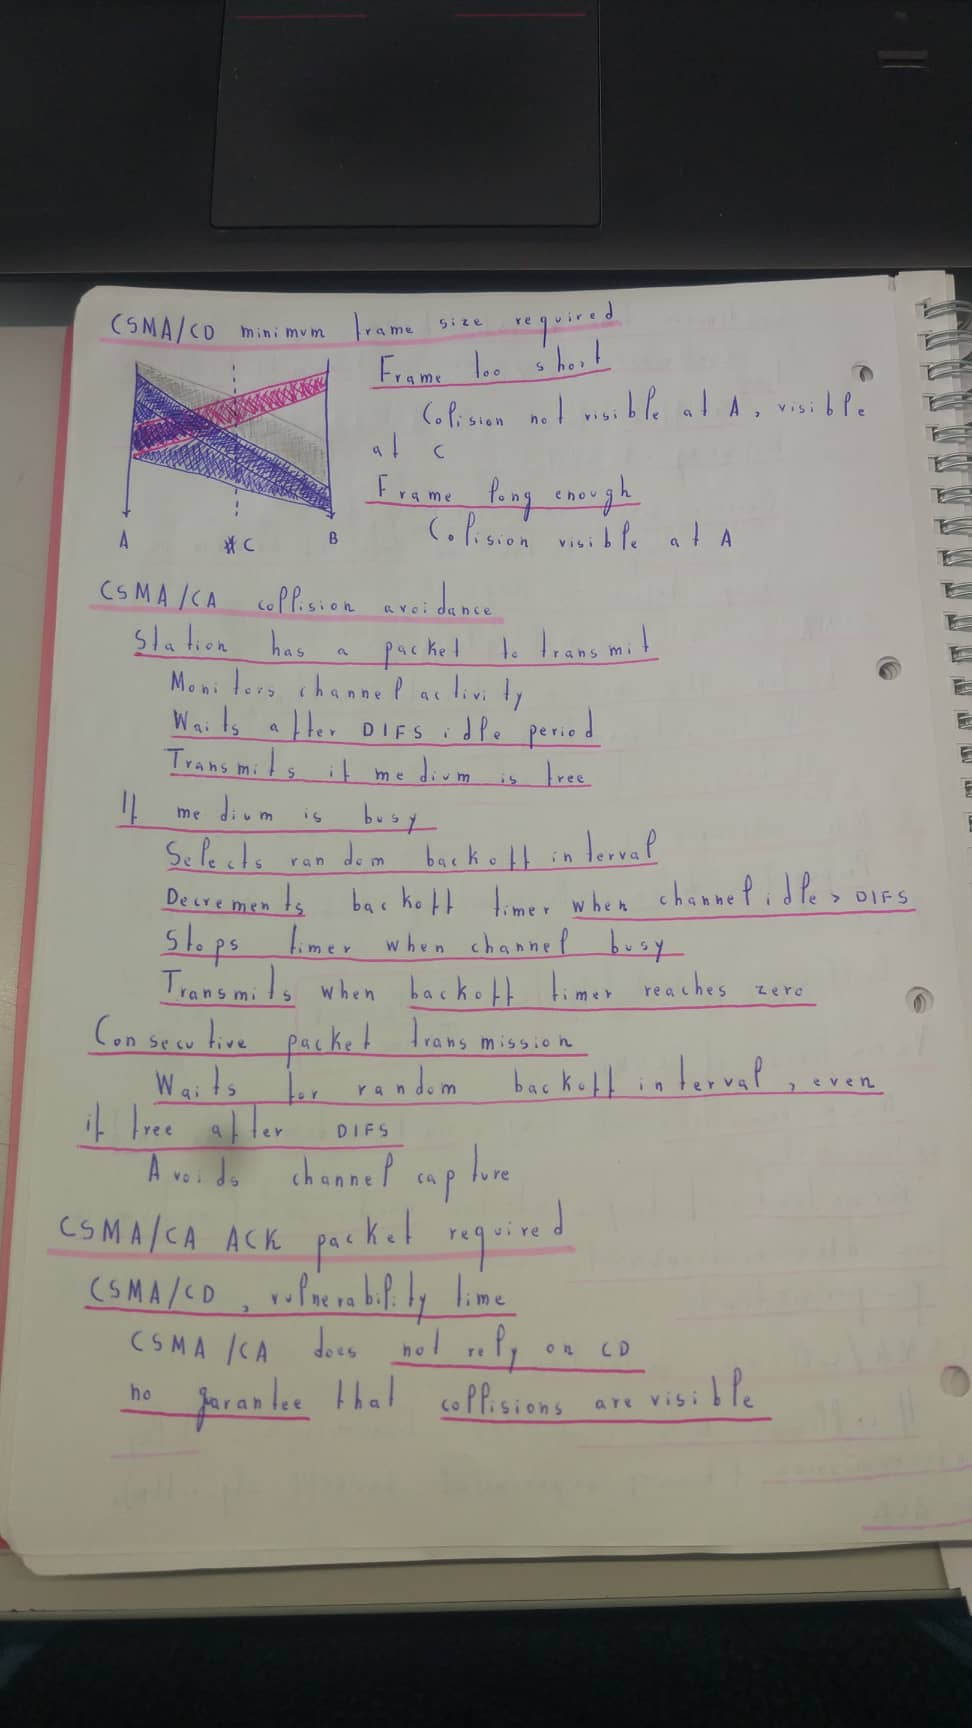 CSMA/CD minimum frame size required
Frame too short
Colision not visible at A, visible
at C
Frame long enough
Colision visible at A
A C B
CSMA/CA collision avoidance
Station has a packet to transmit
Monitors channel activity
Waits after DIFS idle period
Transmits if medium is free
If medium is busy
Selects random backoff interval
Decrements backoff timer when channel idle > DIFS
Stops timer when channel busy
Transmits when backoff timer reaches zero
Consecutive packet transmission
Waits for random backoff interval, even
if free after DIFS
Avoids channel capture
CSMA/CA ACK packet required
CSMA/CD, vulnerability time
CSMA/CA does not rely on CD
no garantee that collisions are visible